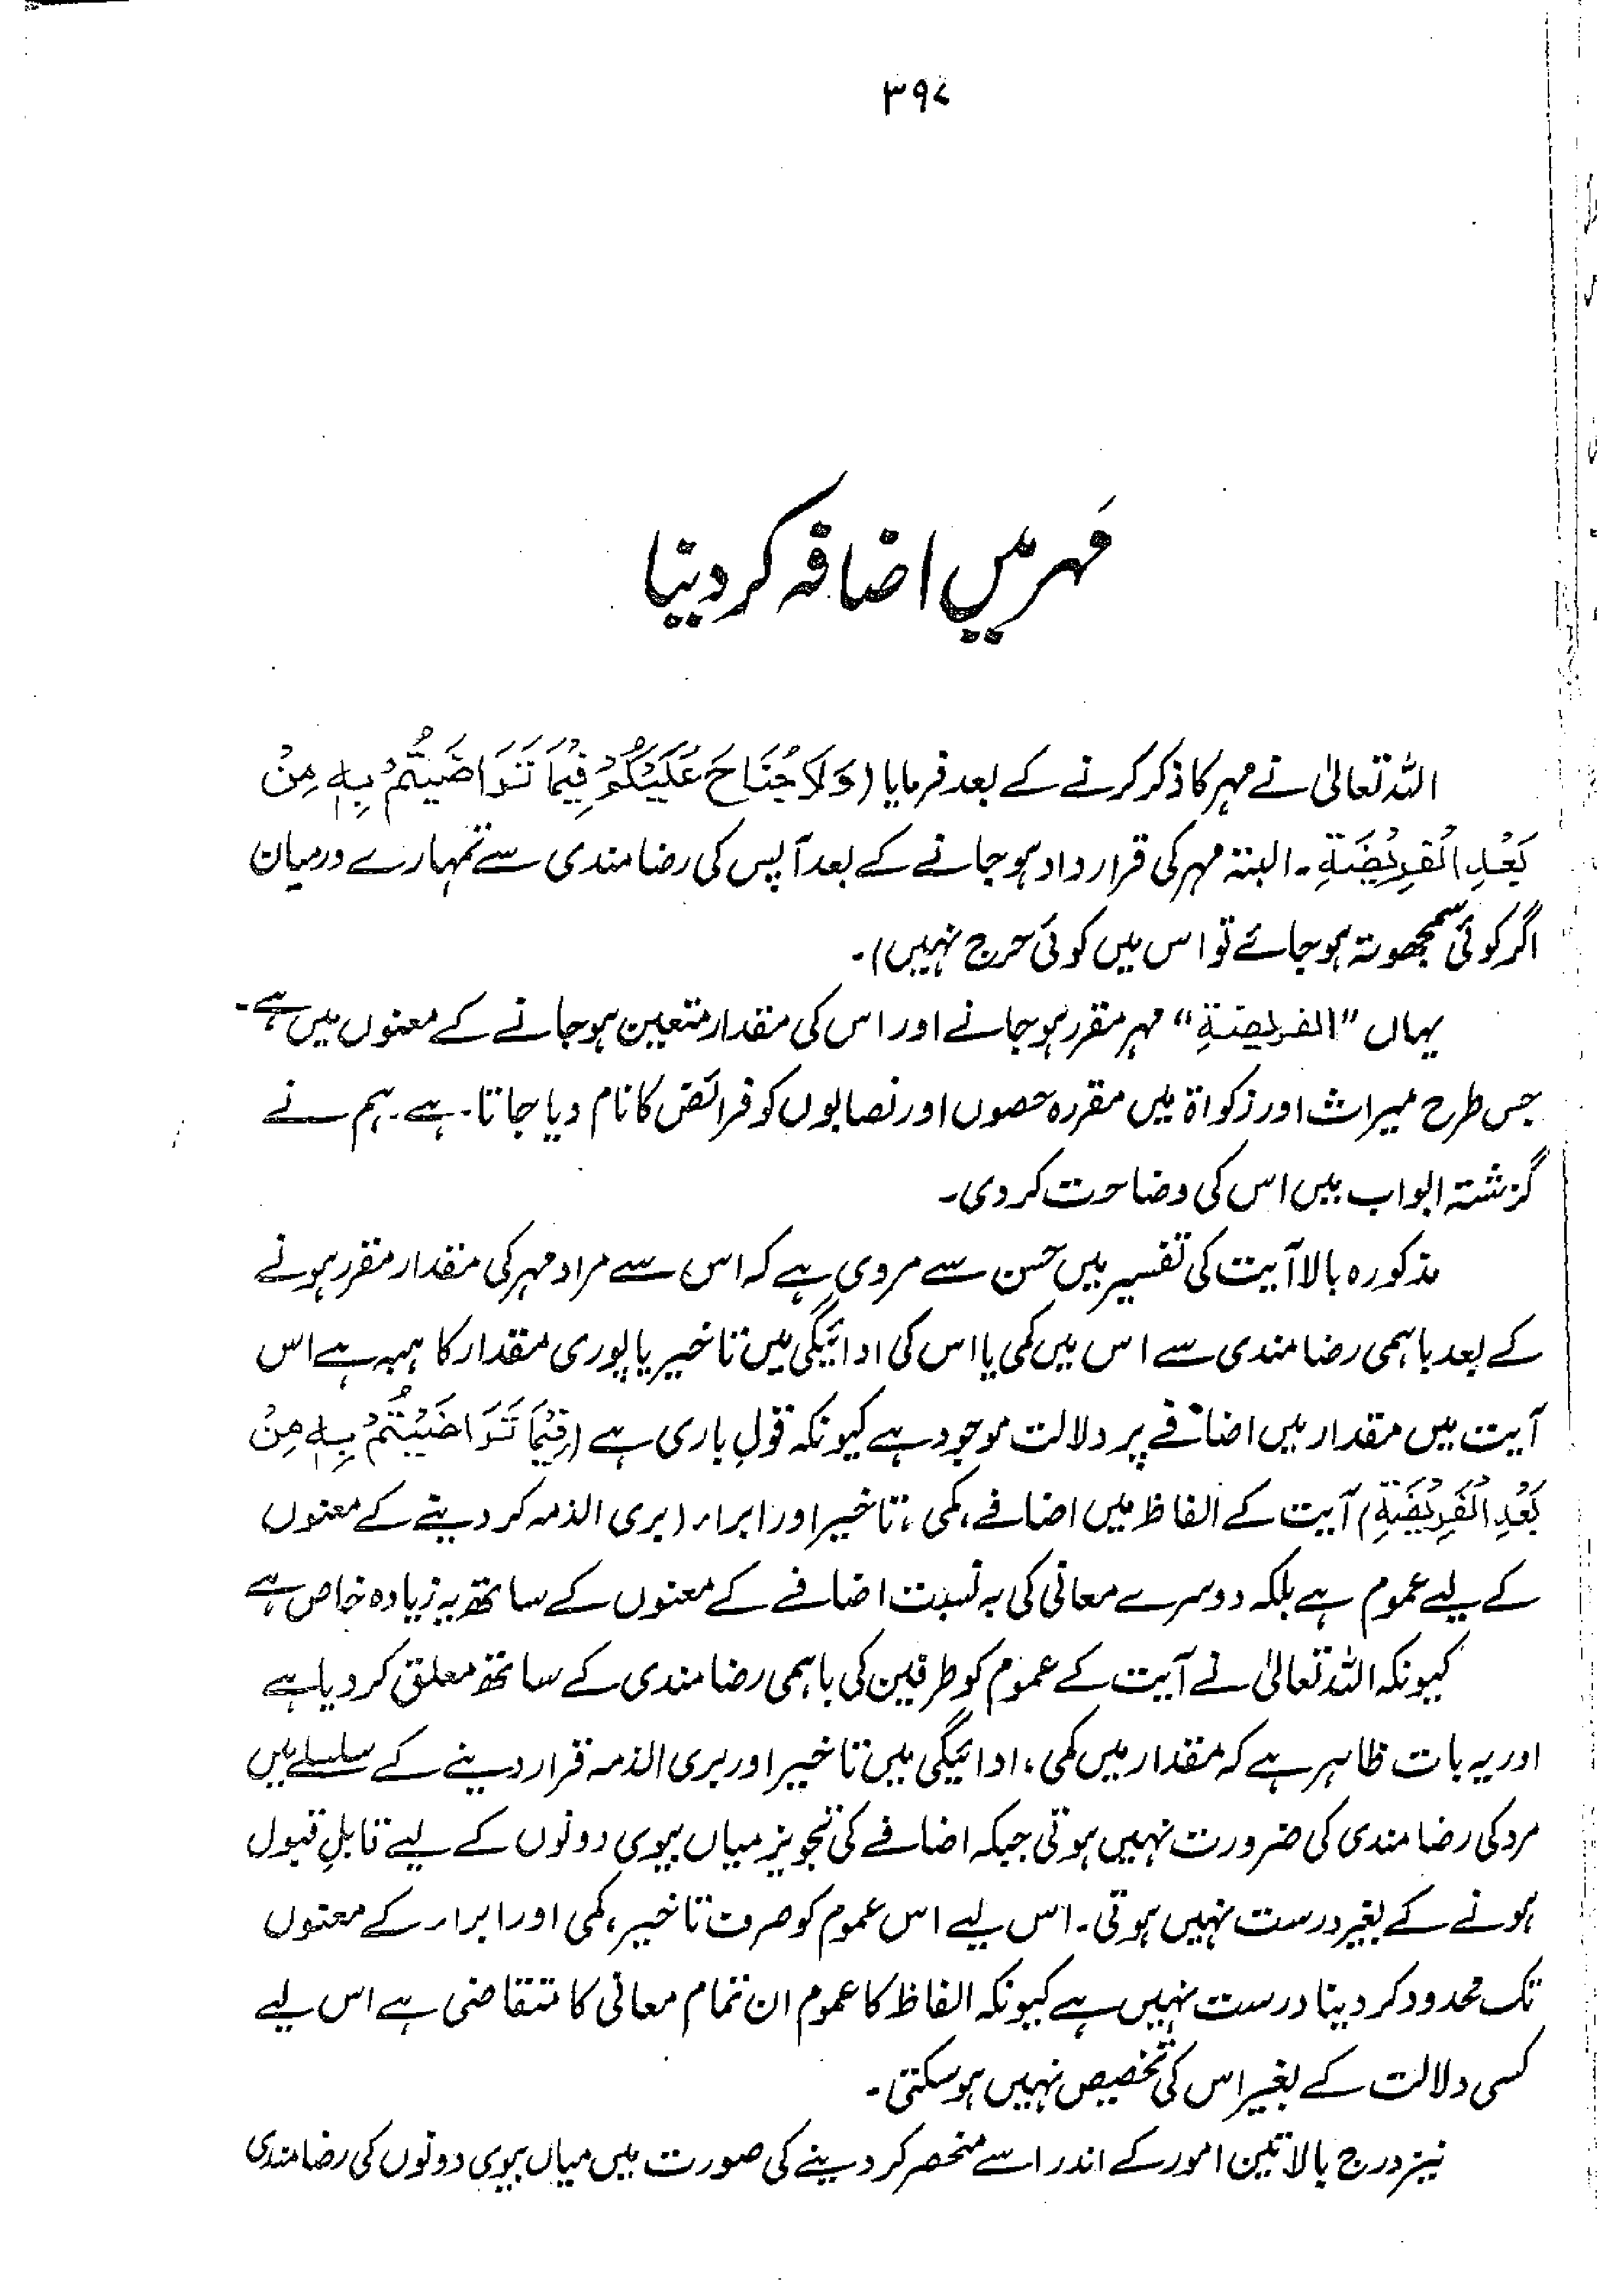 ۳۹۷
مَہر میں اضافہ کر دینا
اللہ تعالیٰ نے مہر کا ذکر کرنے کے بعد فرمایا (وَلَا جُنَاحَ عَلَيْكُمْ فِيْمَا تَرَاضَيْتُمْ بِهٖ مِنْ
بَعْدِ الْفَرِيْضَةِ۔ البتہ مہر کی قرارداد ہو جانے کے بعد آپس کی رضامندی سے تمہارے درمیان
اگر کوئی سمجھوتہ ہو جائے تو اس میں کوئی حرج نہیں)۔
یہاں "الفریضۃِ" مہر مقرر ہو جانے اور اس کی مقدار متعین ہو جانے کے معنوں میں ہے۔
جس طرح میراث اور زکواۃ میں مقررہ حصوں اور نصابوں کو فرائض کا نام دیا جاتا۔ ہے۔ ہم نے
گزشتہ ابواب میں اس کی وضاحت کر دی۔
مذکورہ بالا آیت کی تفسیر میں حسن سے مروی ہے کہ اس سے مراد مہر کی مقدار مقرر ہونے
کے بعد باہمی رضامندی سے اس میں کمی یا اس کی ادائیگی میں تاخیر یا پوری مقدار کا ہبہ ہے اس
آیت میں مقدار میں اضافے پر دلالت موجود ہے کیونکہ قولِ باری ہے (فِيْمَا تَرَاضَيْتُمْ بِهٖ مِنْ
بَعْدِ الْفَرِيْضَةِ) آیت کے الفاظ میں اضافے، کمی، تاخیر اور ابراء (بری الذمہ کر دینے کے معنوں
کے لیے عموم ہے بلکہ دوسرے معانی کی بہ نسبت اضافے کے معنوں کے ساتھ یہ زیادہ خاص ہے
کیونکہ اللہ تعالیٰ نے آیت کے عموم کو طرفین کی باہمی رضامندی کے ساتھ معلق کر دیا ہے
اور یہ بات ظاہر ہے کہ مقدار میں کمی، ادائیگی میں تاخیر اور بری الذمہ قرار دینے کے سلسلے میں
مرد کی رضامندی کی ضرورت نہیں ہوتی جبکہ اضافے کی تجویز میاں بیوی دونوں کے لیے قابلِ قبول
ہونے کے بغیر درست نہیں ہوتی۔ اس لیے اس عموم کو صرف تاخیر، کمی اور ابراء کے معنوں
تک محدود کر دینا درست نہیں ہے کیونکہ الفاظ کا عموم ان تمام معانی کا متقاضی ہے اس لیے
کسی دلالت کے بغیر اس کی تخصیص نہیں ہو سکتی۔
نیز درج بالا تین امور کے اندر اسے منحصر کر دینے کی صورت میں میاں بیوی دونوں کی رضامندی